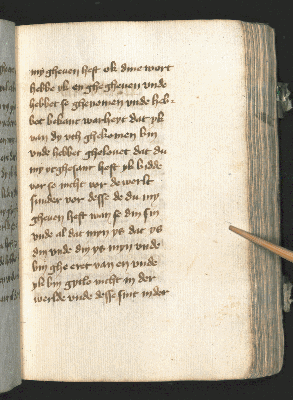 my gheuen hest ok dine wort
hebbe yk en ghegheuen vnde
hebbet se ghenomen vnde heb-
bet bekant warheyt dat yk
van dy vth ghekomen bin
vnde hebbet ghelouet dat du
my vtghesant hest yk bidde
vor se nicht vor de werlt
sunder vor desse de du my
gheuen hest wan se din sin
vnde al dat myn ys dat ys
din vnde din ys myn vnde
bin ghe eret van en vnde
yk bin nicht in der
werlde vnde desse sint in der